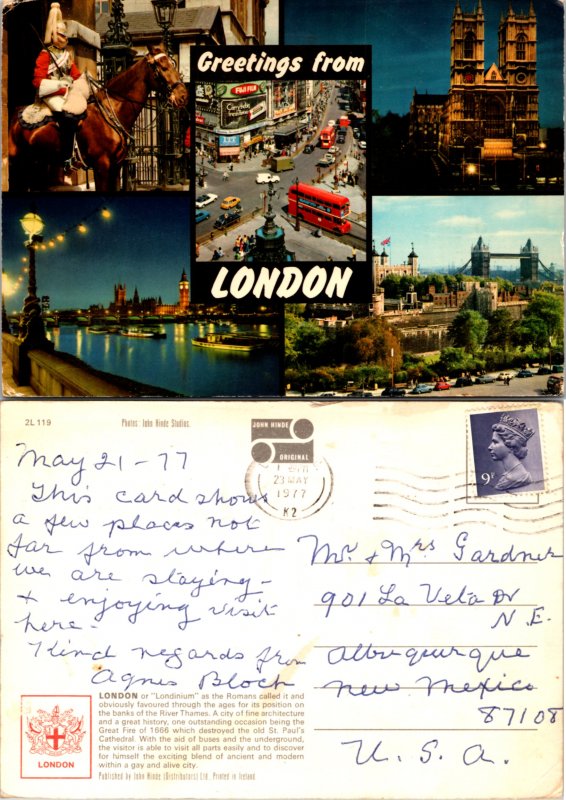 Greetings from
FUJI FILM
LONDON
2L 119
Photos: John Hinde Studios.
JOHN HINDE
ORIGINAL
23 MAY
1977
K2
9P
May 21-77
This card shows
a few places not
far from where
we are staying -
+ enjoying visit
here.
Kind regards from
Agnes Bloch
Mr. + Mrs Gardner
901 La Veta Dr
N.E.
Albuquerque
New Mexico
87108
U.S.A.
LONDON or "Londinium" as the Romans called it and
obviously favoured through the ages for its position on
the banks of the River Thames. A city of fine architecture
and a great history, one outstanding occasion being the
Great Fire of 1666 which destroyed the old St. Paul's
Cathedral. With the aid of buses and the underground,
the visitor is able to visit all parts easily and to discover
for himself the exciting blend of ancient and modern
within a gay and alive city.
LONDON
Published by John Hinde (Distributors) Ltd. Printed in Ireland.